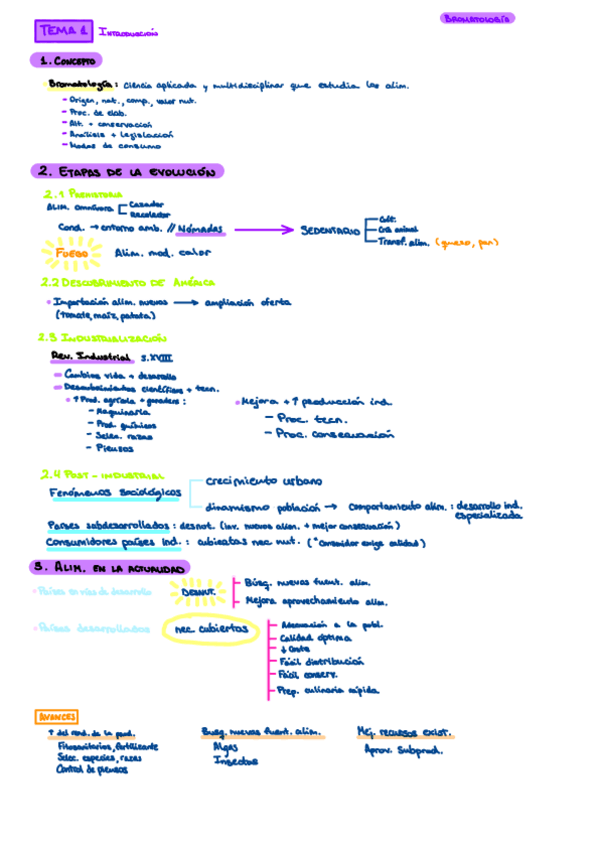 Bromatología
TEMA 1 Introducción
1. Concepto
Bromatología: Ciencia aplicada y multidisciplinar que estudia los alim.
- Origen, nat., comp., valor nut.
- Proc. de elab.
- Alt. + conservación
- Análisis + legislación
- Modas de consumo
2. Etapas de la evolución
2.1 Prehistoria
Alim. omnívora Cazador
Recolector
Cond. → entorno amb. // Nómadas → Sedentario
Cult.
Cría animal
Transf. alim. (queso, pan)
Fuego Alim. mod. calor
2.2 Descubrimiento de América
• Importación alim. nuevos → ampliación oferta
(tomate, maíz, patata)
2.3 Industrialización
Rev. Industrial s.XVIII
- Cambios vida + desarrollo
- Descubrimientos científicos + tecn.
• ↑ Prod. agrícola + ganadera:
- Maquinaria
- Prod. químicos
- Selec. razas
- Piensos
• Mejora + ↑ producción ind.
- Proc. tecn.
- Proc. conservación
2.4 Post-industrial
Fenómenos sociológicos
crecimiento urbano
dinamismo población → comportamiento alim.: desarrollo ind.
especializada
Países subdesarrollados: desnut. (inv. nuevos alim. + mejor conservación)
Consumidores países ind.: cubiertas nec nut. (*Consumidor exige calidad)
3. Alim. en la actualidad
• Países en vías de desarrollo
Desnut.
Búsq. nuevas fuent. alim.
Mejora aprovechamiento alim.
• Países desarrollados
nec. cubiertas
Adecuación a la pobl.
Calidad óptima
↓ Coste
Fácil distribución
Fácil conserv.
Prep. culinaria rápida
Avances
↑ del rend. de la prod.
Fitosanitarios, fertilizante
Selec. especies, razas
Control de piensos
Busq. nuevas fuent. alim.
Algas
Insectos
Mej. recursos exist.
Aprov. Subprod.